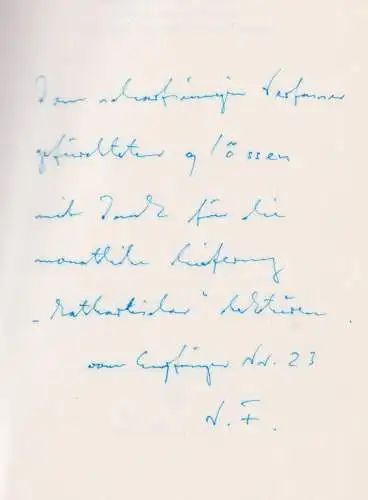 Dem scharfsinnigen Verfasser
gefürchteter glossen
mit Dank für die
monatliche Lieferung
"kathartischer" Lektüren
vom Empfänger Nr. 23
N. F.